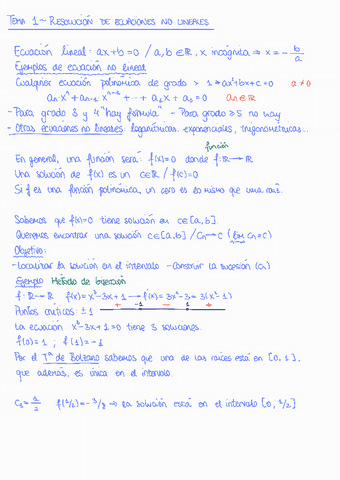 TEMA 1 ~ RESOLUCIÓN DE ECUACIONES NO LINEALES
Ecuación lineal: ax+b=0 / a,b ∈ ℝ, x incógnita ⇒ x = -b/a
Ejemplos de ecuación no lineal
Cualquier ecuación polinómica de grado > 1 → ax²+bx+c=0 a≠0
aₙxⁿ+aₙ₋₁xⁿ⁻¹+...+a₁x+a₀=0 aₙ∈ℝ
- Para grado 3 y 4 "hay fórmula" - Para grado ≥5 no hay
- Otras ecuaciones no lineales: logarítmicas, exponenciales, trigonométricas...
función
En general, una función será f(x)=0 donde f:ℝ→ℝ
Una solución de f(x) es un c∈ℝ / f(c)=0
Si f es una función polinómica, un cero es lo mismo que una raíz.
Sabemos que f(x)=0 tiene solución en c∈[a,b].
Queremos encontrar una solución c∈[a,b] / cₙ→c (lim cₙ=c)
Objetivo:
-Localizar la solución en el intervalo -Construir la sucesión (cₙ)
Ejemplo Método de bisección
f:ℝ→ℝ f(x)=x³-3x+1 → f'(x)=3x²-3=3(x²-1)
Puntos críticos: ±1 + -1 - 1 +
La ecuación x³-3x+1=0 tiene 3 soluciones.
f(0)=1 ; f(1)=-1
Por el Tª de Bolzano sabemos que una de las raíces está en [0,1].
que además, es única en el intervalo.
f(1/2)=-3/8 ⇒ la solución está en el intervalo [0,1/2]